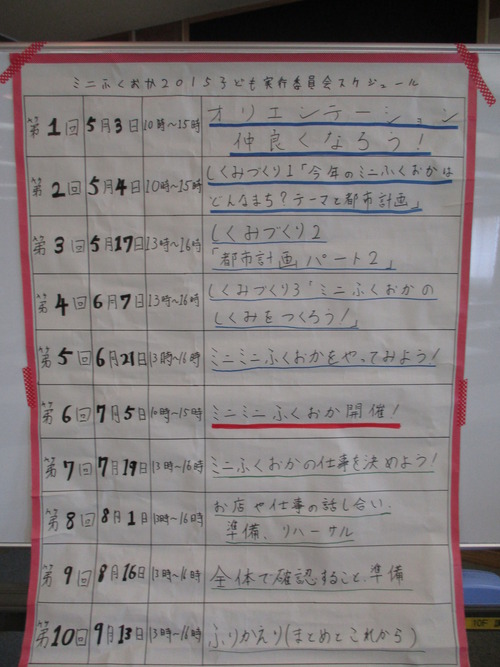 ミニふくおか2015子ども実行委員会スケジュール
第1回 5月3日 10時〜15時 オリエンテーション
仲良くなろう!
第2回 5月4日 10時〜15時 しくみづくり1「今年のミニふくおかは
どんなまち?テーマと都市計画」
第3回 5月17日 13時〜16時 しくみづくり2
「都市計画パート2」
第4回 6月7日 13時〜16時 しくみづくり3「ミニふくおかの
しくみをつくろう!」
第5回 6月21日 13時〜16時 ミニミニふくおかをやってみよう!
第6回 7月5日 10時〜15時 ミニミニふくおか開催!
第7回 7月19日 13時〜16時 ミニふくおかの仕事を決めよう!
第8回 8月1日 13時〜16時 お店や仕事の話し合い、
準備、リハーサル
第9回 8月16日 13時〜16時 全体で確認すること、準備
第10回 9月13日 13時〜16時 ふりかえり(まとめとこれから)